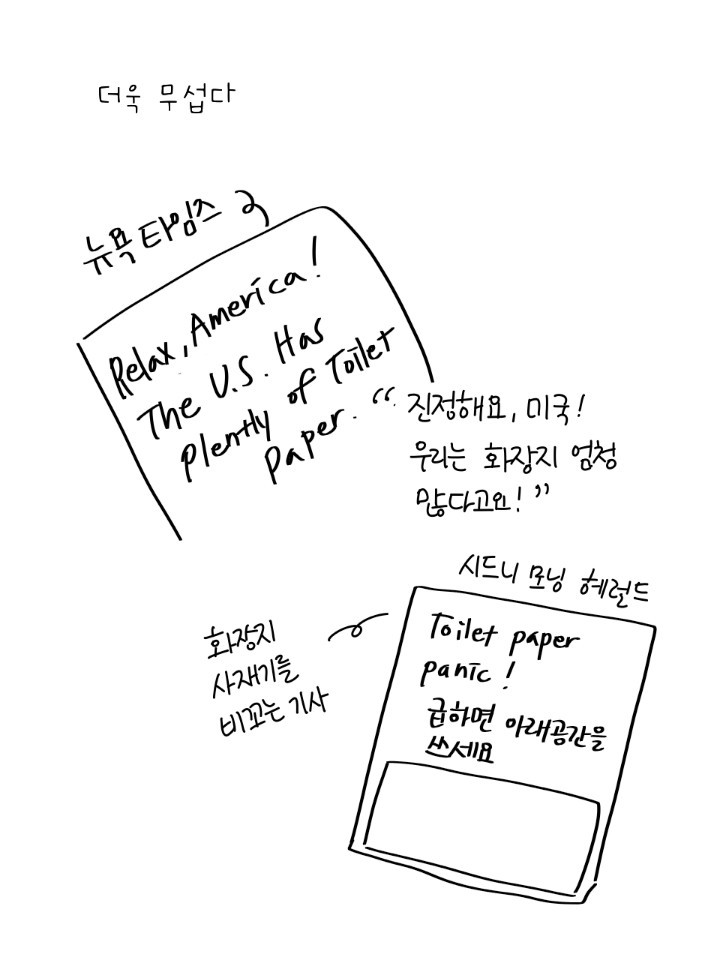 더욱 무섭다
뉴욕타임즈
Relax, America!
The U.S. Has
Plently of Toilet
Paper.
“진정해요, 미국!
우리는 화장지 엄청
많다고요!”
시드니 모닝 헤럴드
화장지
사재기를
비꼬는 기사
Toilet paper
panic!
급하면 아래공간을
쓰세요